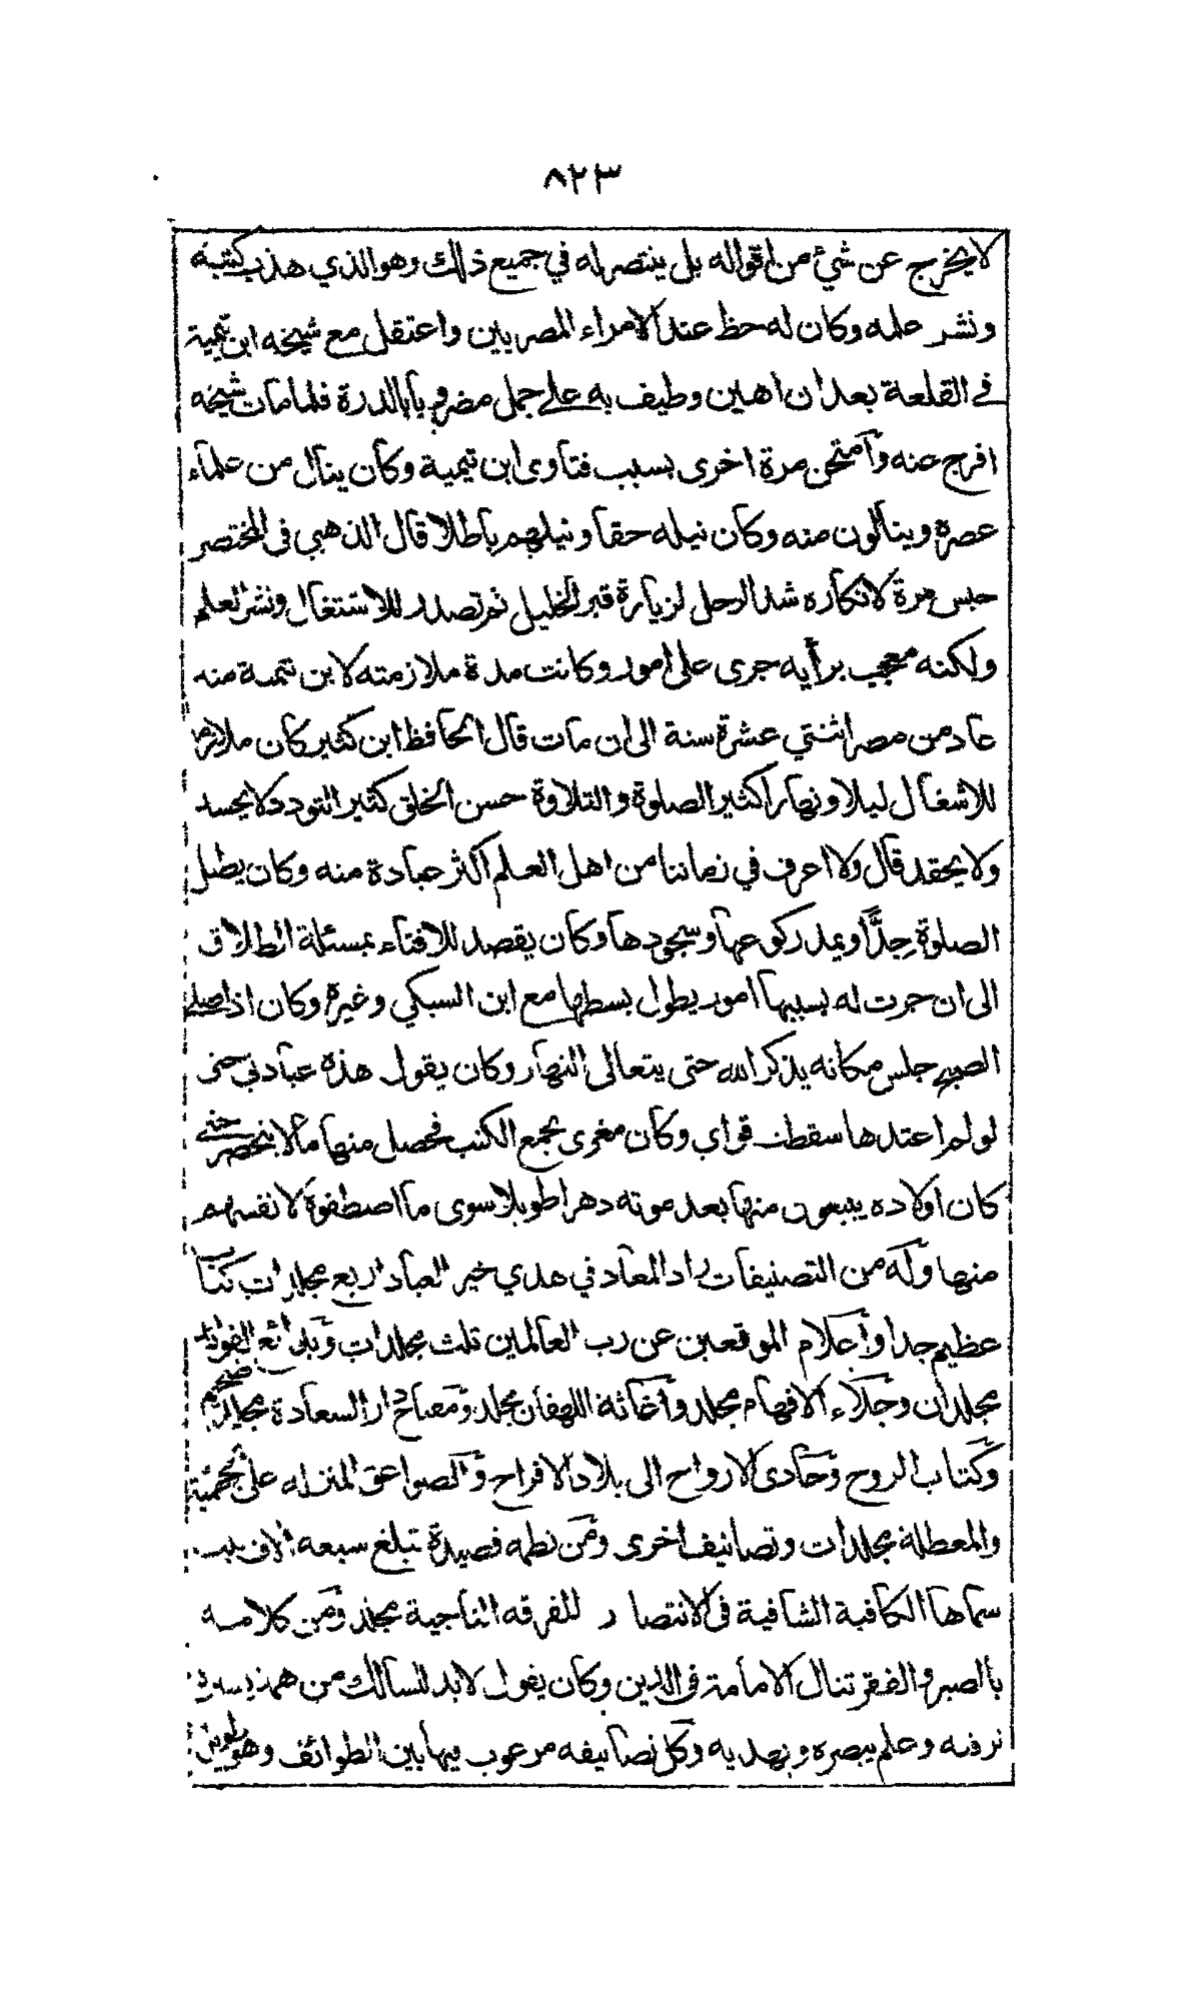 ٨٢٣
لا يخرج عن شيء من اقواله بل ينتصر له في جميع ذلك وهو الذي هذب كتبه
ونشر علمه وكان له حظ عند الامراء المصريين واعتقل مع شيخه ابن تيمية
في القلعة بعد ان اهين وطيف به على جمل مضروبا بالدرة فلما مات شيخه
افرج عنه وامتحن مرة اخرى بسبب فتاوى ابن تيمية وكان ينال من علماء
عصره وينالون منه وكان نيله حقا ونيلهم باطلا قال الذهبي في المختصر
حبس مرة لانكاره شد الرحل لزيارة قبر الخليل ثم تصدر للاشتغال ونشر العلم
ولكنه معجب برأيه جرى على امور وكانت مدة ملازمته لابن تيمية منذ
عاد من مصر اثنتي عشرة سنة الى ان مات قال الحافظ ابن كثير كان ملازما
للاشغال ليلا ونهارا كثير الصلوة والتلاوة حسن الخلق كثير التودد لا يحسد
ولا يحقد قال ولا اعرف في زماننا من اهل العلم اكثر عبادة منه وكان يطيل
الصلوة جِدًّا ويمد ركوعها وسجودها وكان يقصد للافتاء بمسئلة الطلاق
الى ان جرت له بسببها امور يطول بسطها مع ابن السبكي وغيره وكان اذا صلى
الصبح جلس مكانه يذكر الله حتى يتعالى النهار وكان يقول هذه عبادتي حتى
لو لم اعتدها سقطت قواي وكان مغرى بجمع الكتب فحصل منها ما لا ينحصر حتى
كان اولاده يبيعون منها بعد موته دهرا طويلا سوى ما اصطفوه لانفسهم
منها وله من التصنيفات زاد المعاد في هدي خير العباد اربع مجلدات كتاب
عظيم جدا وأعلام الموقعين عن رب العالمين ثلث مجلدات وبدائع الفوائد
مجلدان وجلاء الافهام مجلد واغاثة اللهفان مجلد ومفتاح دار السعادة مجلد ضخم
وكتاب الروح وحادى الارواح الى بلاد الافراح والصواعق المنزله على الجهمية
والمعطلة مجلدات وتصانيف اخرى ومن نظمه قصيدة تبلغ سبعه الاف بيت
سماها الكافية الشافية في الانتصار للفرقه الناجية مجلد ومن كلامه
بالصبر والفقر تنال الامامة في الدين وكان يقول لا بد للسالك من همة يسيره
ترقيه وعلم يبصره ويهديه وكل تصانيفه مرغوب فيها بين الطوائف وهو طويل